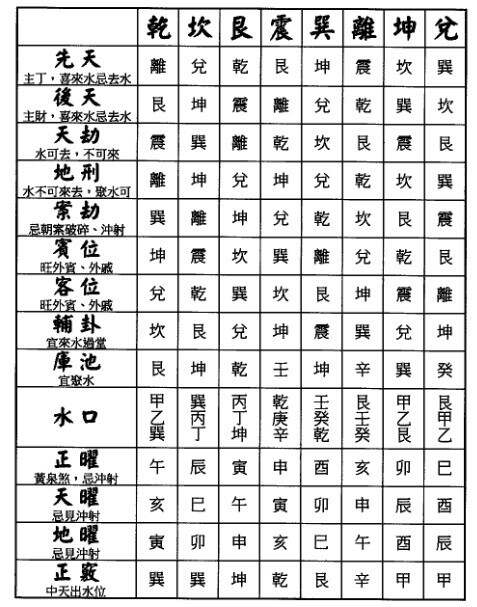 乾 坎 艮 震 巽 離 坤 兌
先天 離 兌 乾 艮 坤 震 坎 巽
主丁，喜來水忌去水
後天 艮 坤 震 離 兌 乾 巽 坎
主財，喜來水忌去水
天劫 震 巽 離 乾 坎 艮 震 艮
水可去，不可來
地刑 離 坤 兌 坤 兌 乾 坎 巽
水不可來去，聚水可
案劫 巽 離 坤 兌 乾 坎 艮 震
忌朝案破碎、沖射
賓位 坤 震 坎 巽 離 兌 乾 艮
旺外賓、外戚
客位 兌 乾 巽 坎 艮 坤 震 離
旺外賓、外戚
輔卦 坎 艮 兌 坤 震 巽 兌 坤
宜來水過堂
庫池 艮 坤 乾 壬 坤 辛 巽 癸
宜聚水
水口 甲乙巽 巽丙丁 丙丁坤 乾庚辛 壬癸乾 艮壬癸 甲乙艮 艮甲乙
正曜 午 辰 寅 申 酉 亥 卯 巳
黃泉煞，忌沖射
天曜 亥 巳 午 寅 卯 申 辰 酉
忌見沖射
地曜 寅 卯 申 亥 巳 午 酉 辰
忌見沖射
正竅 巽 巽 坤 乾 艮 辛 甲 甲
中天出水位